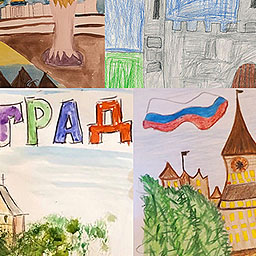 ГРАД